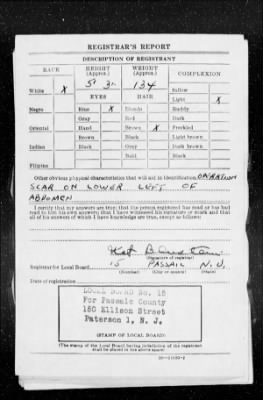 REGISTRAR'S REPORT
DESCRIPTION OF REGISTRANT
RACE HEIGHT (Approx.) WEIGHT (Approx.) COMPLEXION
5' 3" 134
Sallow
White X EYES HAIR Light X
Negro Blue X Blonde Ruddy
Gray Red Dark
Oriental Hazel Brown X Freckled
Brown Black Light brown
Indian Black Gray Dark brown
Bald Black
Filipino
Other obvious physical characteristics that will aid in identification OPERATION
SCAR ON LOWER LEFT OF
ABDOMEN
I certify that my answers are true; that the person registered has read or has had
read to him his own answers; that I have witnessed his signature or mark and that
all of his answers of which I have knowledge are true, except as follows:
(Signature of registrar)
Registrar for Local Board 15 PASSAIC N.J.
(Number) (City or county) (State)
Date of registration
LOCAL BOARD No. 15
For Passaic County
150 Ellison Street
Paterson 1, N. J.
(STAMP OF LOCAL BOARD)
(The stamp of the Local Board having jurisdiction of the registrant
shall be placed in the above space)